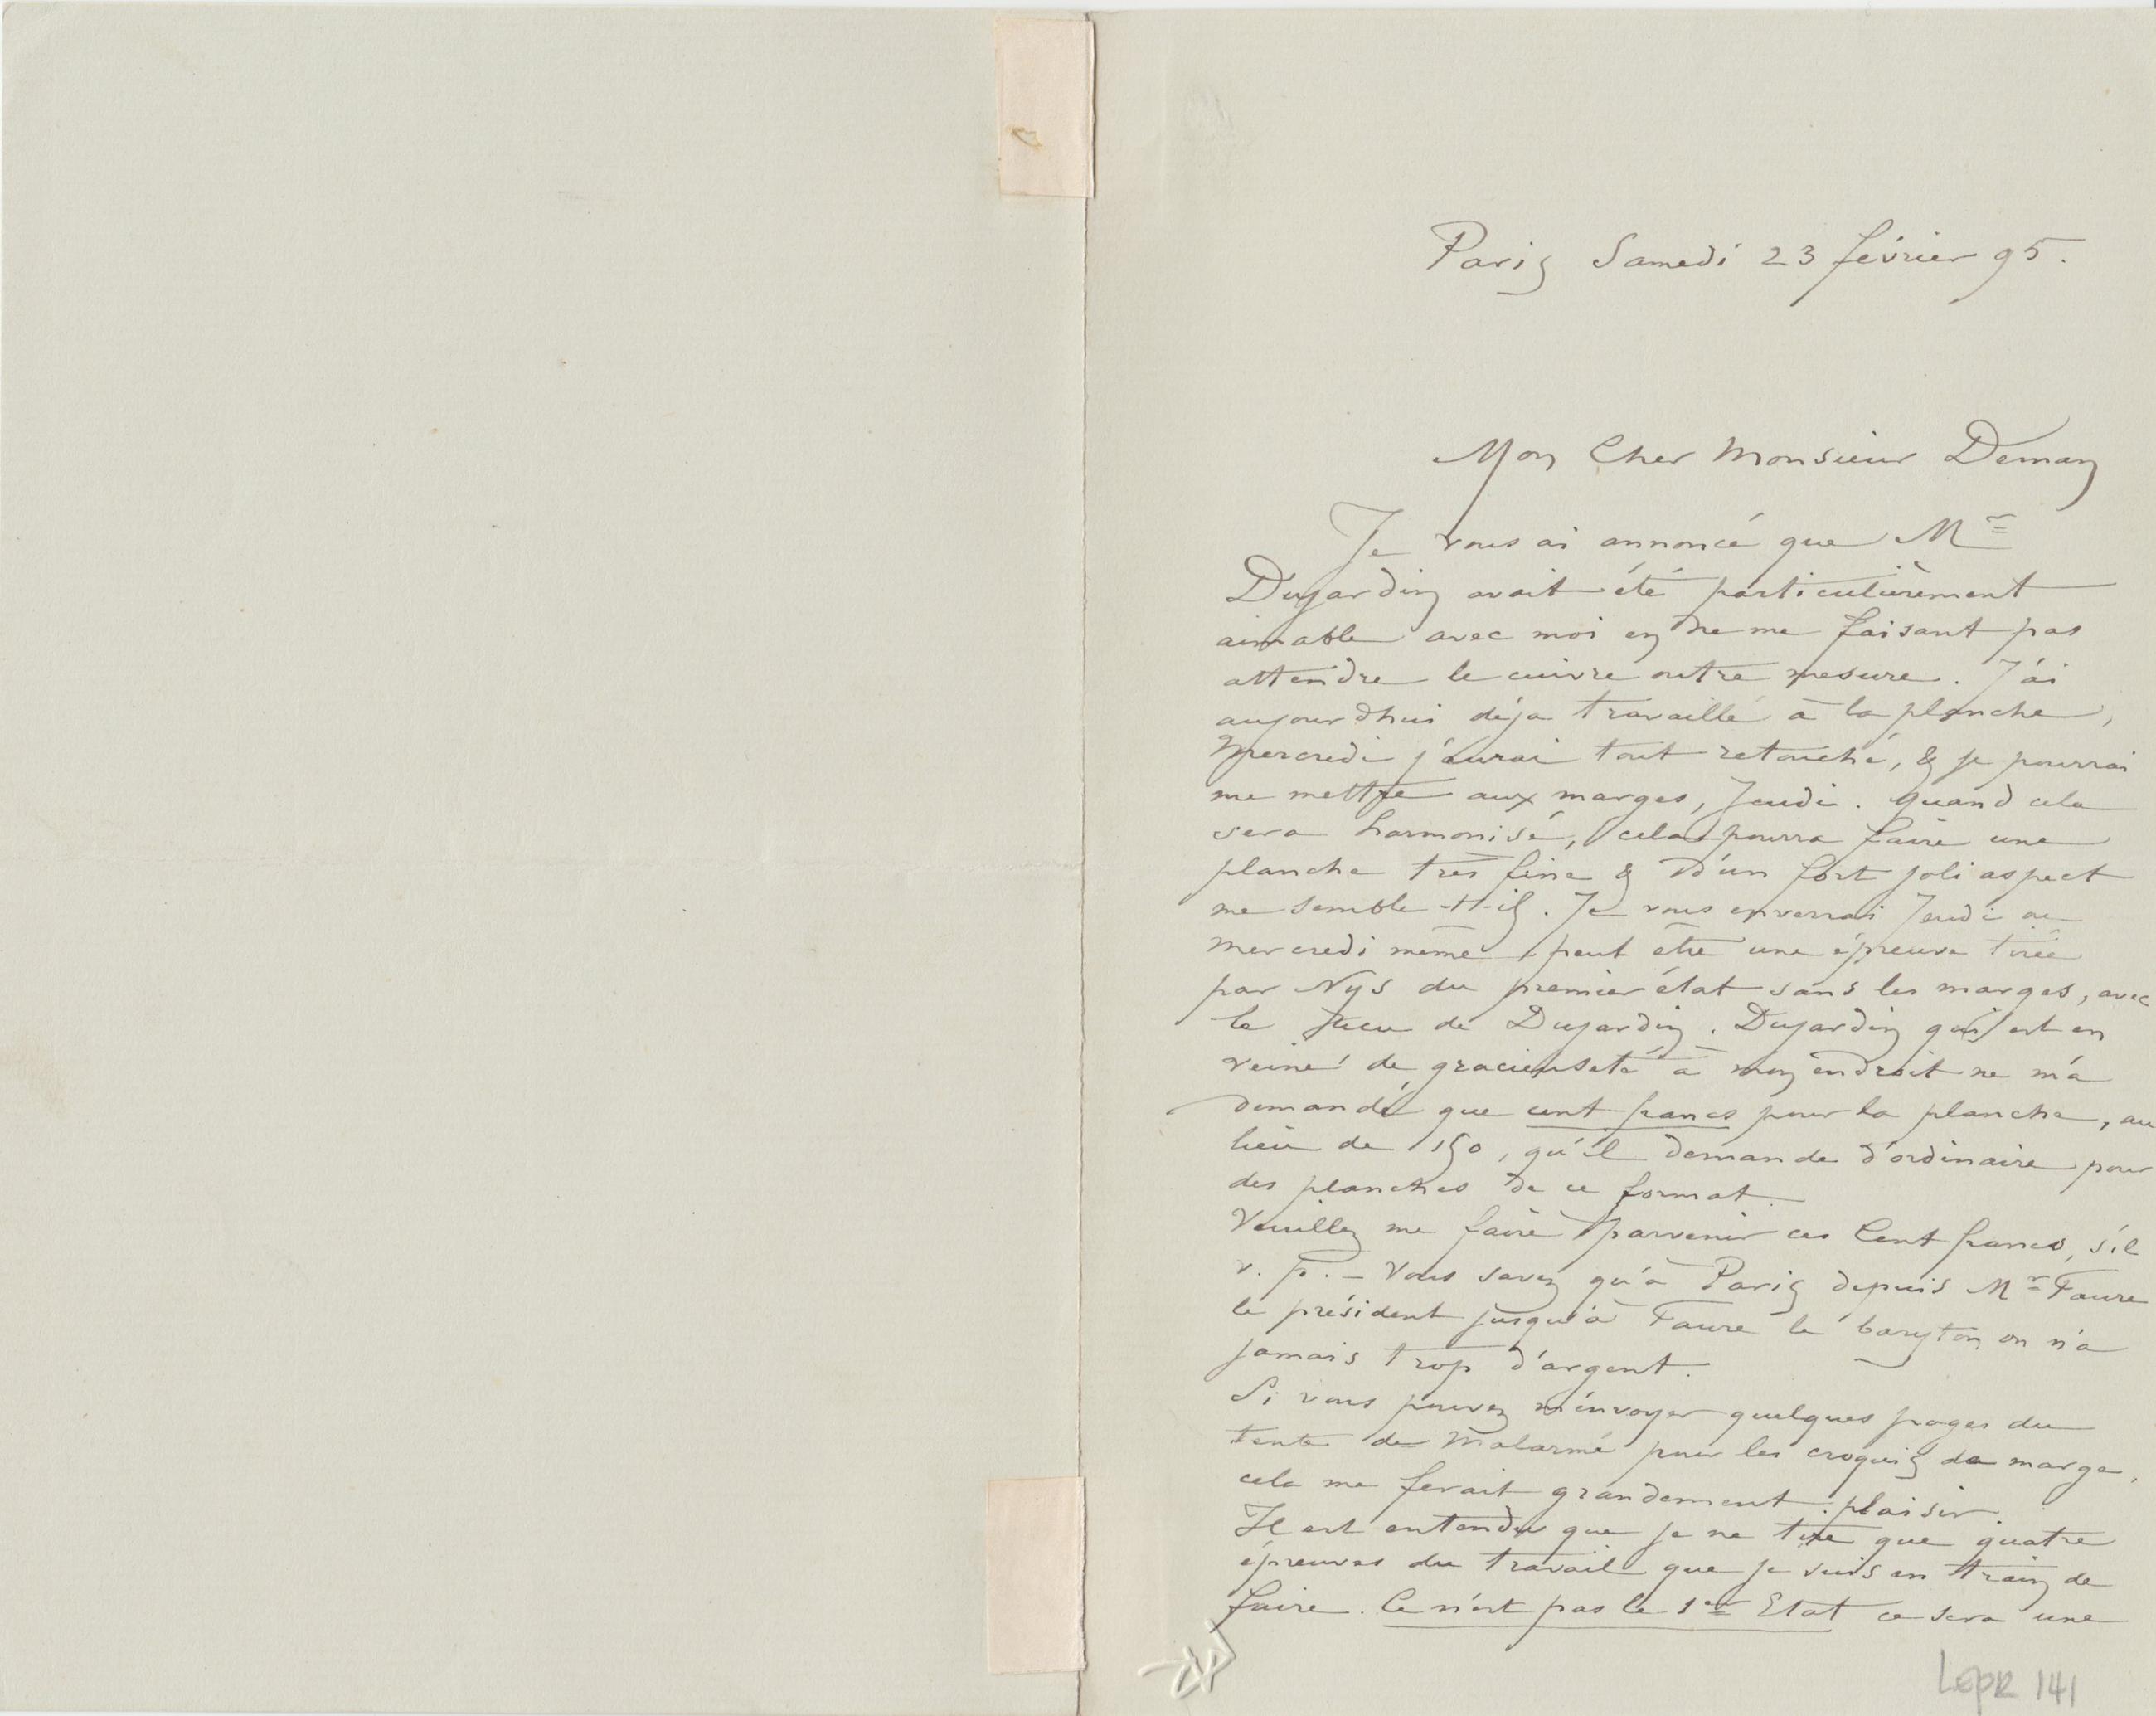 Paris Samedi 23 février 95.
Mon Cher Monsieur Deman
Je vous ai annoncé que Mr
Dujardin avait été particulièrement
aimable avec moi en ne me faisant pas
attendre le cuivre outre mesure. J'ai
aujourdhui déja travaillé à la planche,
Mercredi j'aurai tout retouché, & je pourrai
me mettre aux marges, Jeudi. Quand cela
sera harmonisé, cela pourra faire une
planche très fine & d'un fort joli aspect
me semble-t-il. Je vous enverrai Jeudi ou
Mercredi même peut être une épreuve tirée
par Nys du premier état sans les marges, avec
le de Dujardin. Dujardin qui est en
veine de gracieuseté à mon endroit ne m'a
demandé que cent francs pour la planche, au
lieu de 150, qu'il demande d'ordinaire pour
des planches de ce format.
Veuillez me faire parvenir ces Cent francs, s'il
v. p. – Vous savez qu'à Paris depuis Mr Faure
le président jusqu'à Faure le baryton on n'a
jamais trop d'argent.
Si vous pouvez m'envoyer quelques pages du
texte de Malarmé pour les croquis de marge,
cela me ferait grandement plaisir.
Il est entendu que je ne tire que quatre
épreuves du travail que je suis en train de
faire. Ce n'est pas le 1er Etat ce sera une
LEPR 141